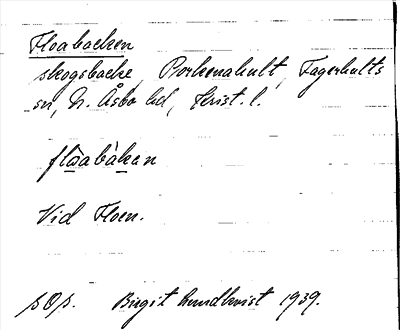 Floabacken
skogsbacke, Porkenahult, Fagerhults
sn, N. Åsbo hd, Krist. l.
flåabàkan
Vid Floen.
sOs. Birgit Lundkvist 1939.